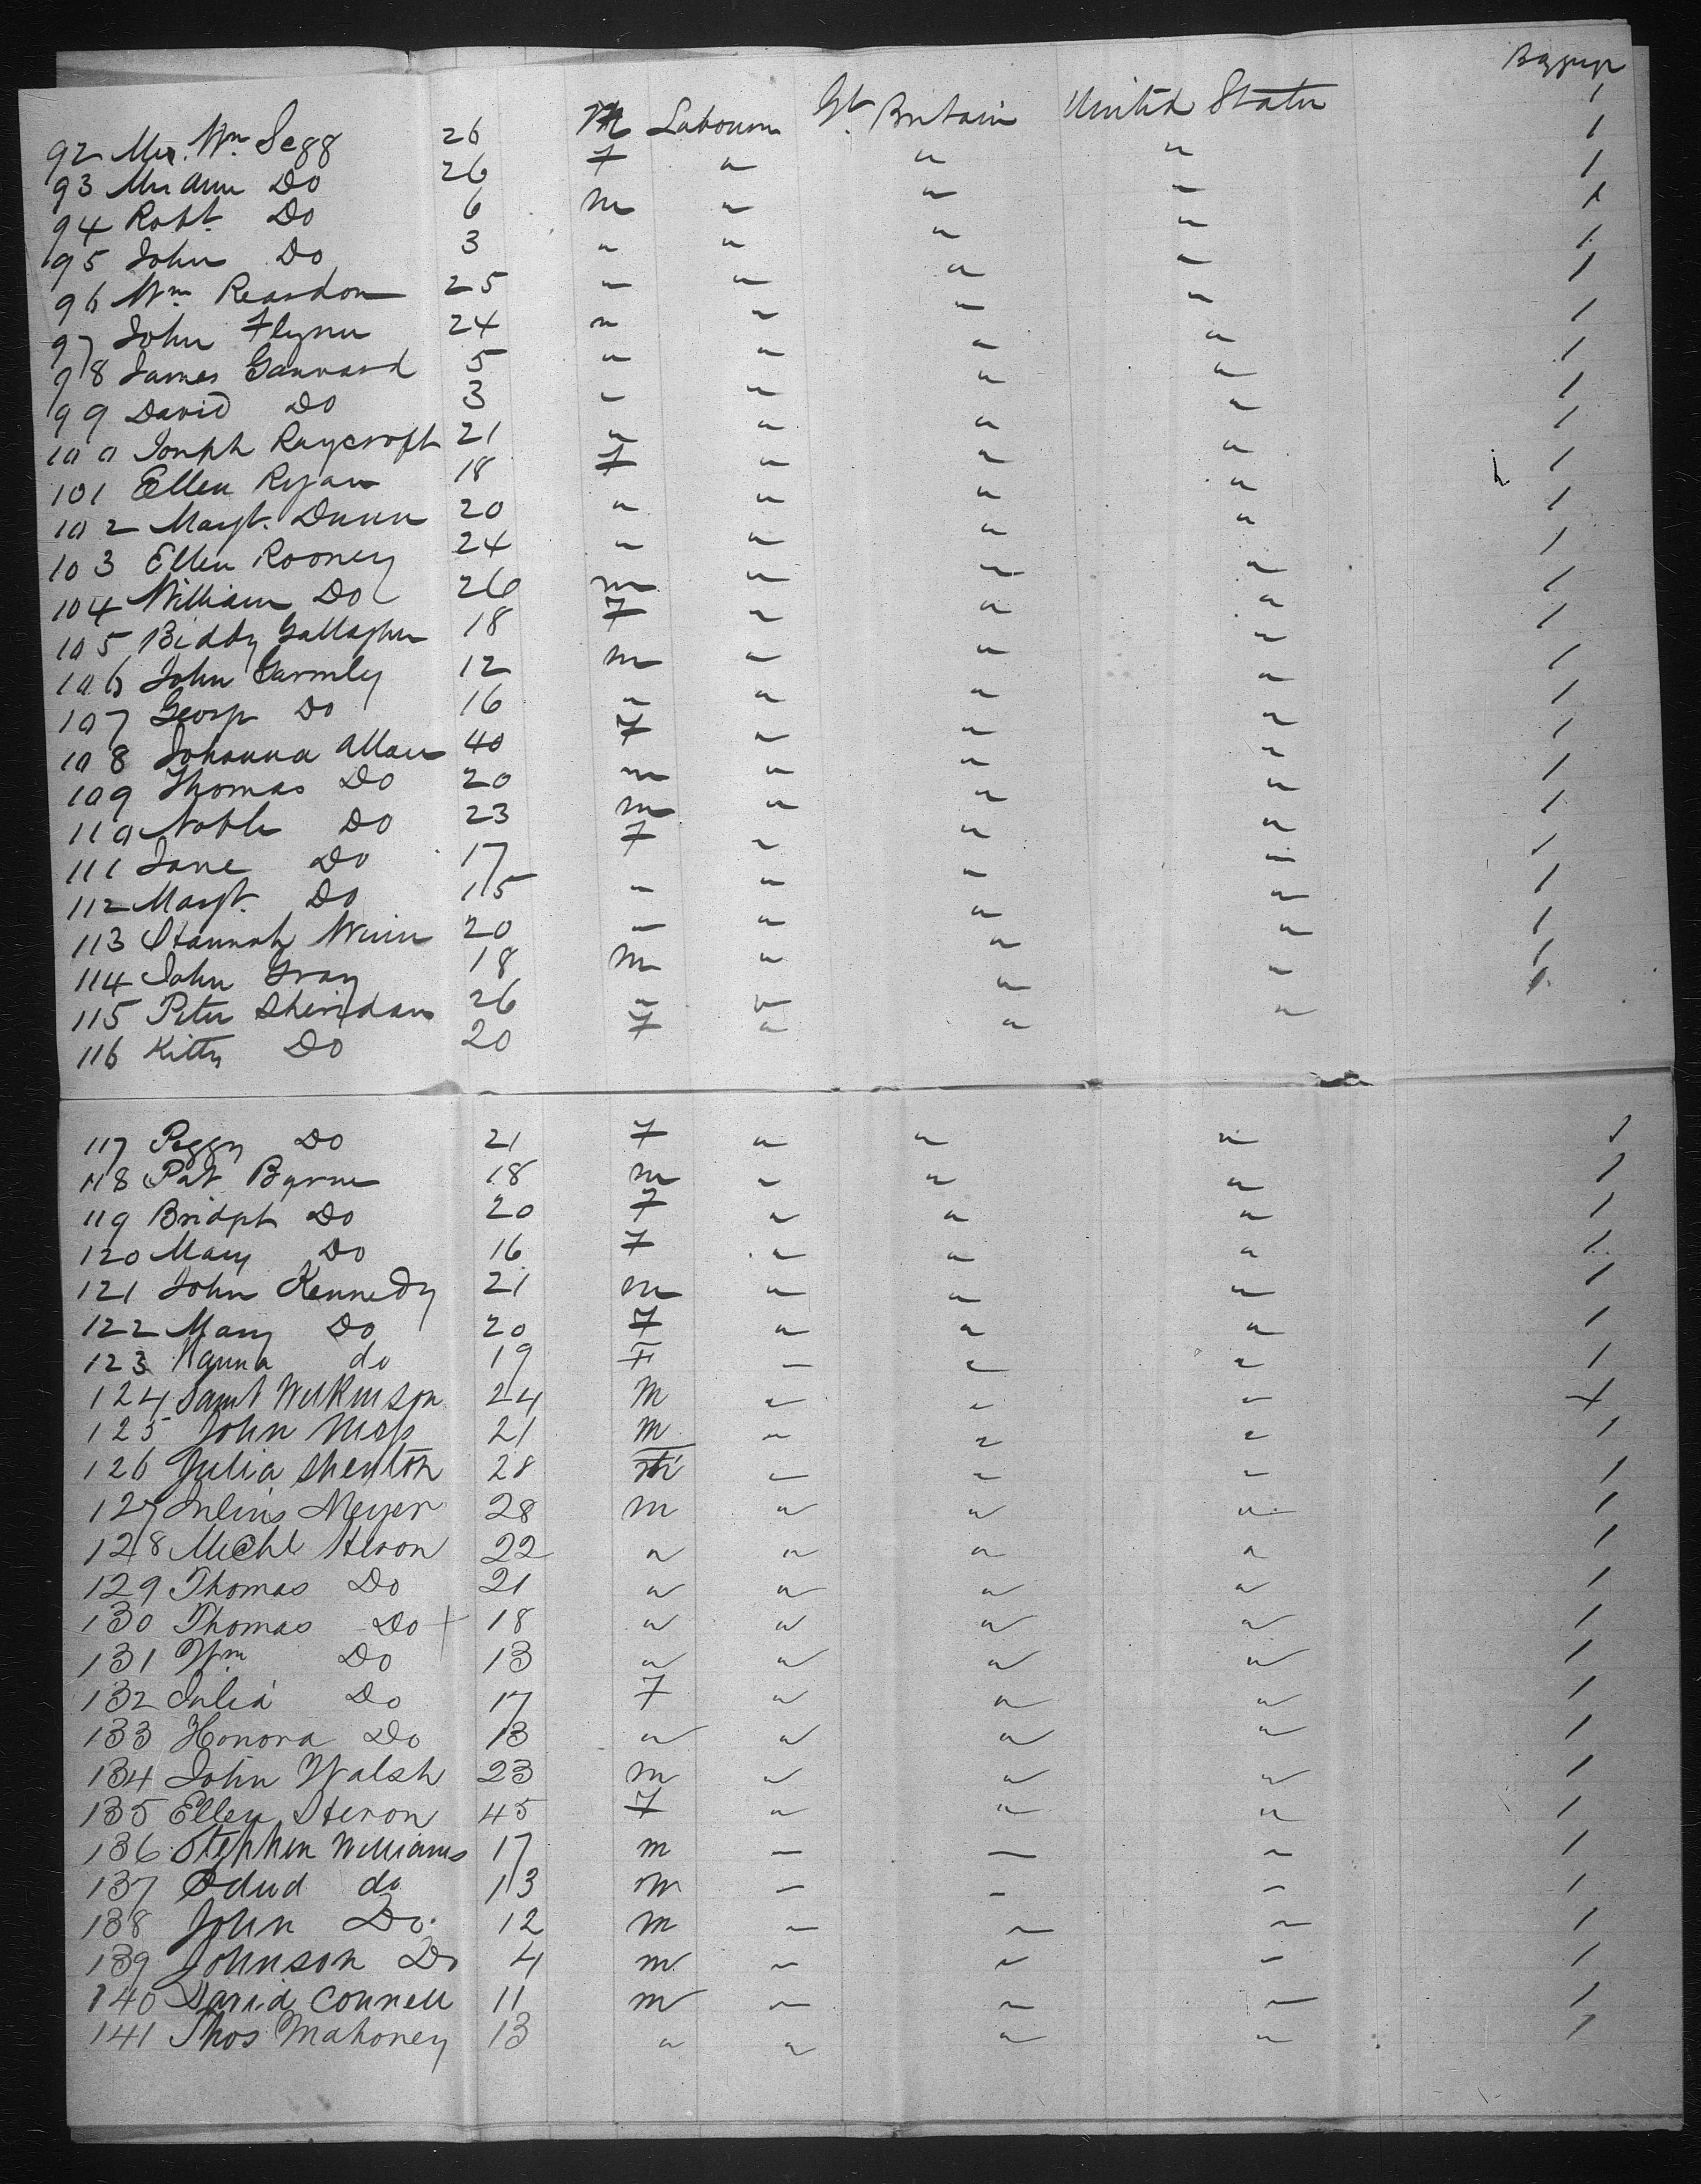 Baggage
92 Mr. Wm Segg 26 M Labourer Gt. Britain United States 1
93 Mrs Ann Do 26 F " " " 1
94 Robt. Do 6 m " " " 1
95 John Do 3 " " " " 1
96 Wm Reardon 25 " " " " 1
97 John Flynn 24 " " " " 1
98 James Gannard 5 " " " " 1
99 David Do 3 " " " " 1
100 Joseph Raycroft 21 " " " " 1
101 Ellen Ryan 18 F " " " 1
102 Margt. Dunn 20 " " " " 1
103 Ellen Rooney 24 " " " " 1
104 William Do 26 m " " " 1
105 Biddy Gallagher 18 F " " " 1
106 John Garmley 12 m " " " 1
107 George Do 16 " " " " 1
108 Johanna Allan 40 F " " " 1
109 Thomas Do 20 m " " " 1
110 Noble Do 23 m " " " 1
111 Jane Do 17 F " " " 1
112 Margt. Do 15 " " " " 1
113 Hannah Winn 20 " " " " 1
114 John Gray 18 m " " " 1
115 Peter Sheridan 26 " " " " 1
116 Kitty Do 20 F " " " 1
117 Peggy Do 21 F " " " 1
118 Pat Byrne 18 m " " " 1
119 Bridget Do 20 F " " " 1
120 Mary Do 16 F " " " 1
121 John Kennedy 21 m " " " 1
122 Mary Do 20 F " " " 1
123 Nanna do 19 F " " " 1
124 Saml Wilkinson 24 M " " " 1
125 John 21 M " " " 1
126 Julia Shenton 28 " " " 1
127 Julius Meyer 28 m " " " 1
128 Michl Heron 22 " " " " 1
129 Thomas Do 21 " " " " 1
130 Thomas Do + 18 " " " " 1
131 Wm Do 13 " " " " 1
132 Julia Do 17 F " " " 1
133 Honora Do 13 " " " " 1
134 John Walsh 23 m " " " 1
135 Ellen Heron 45 F " " " 1
136 Stephen Williams 17 m " " " 1
137 Edwd do 13 m " " " 1
138 John Do. 12 m " " " 1
139 Johnson Do 4 m " " " 1
140 David Connell 11 m " " " 1
141 Thos Mahoney 13 " " " " 1